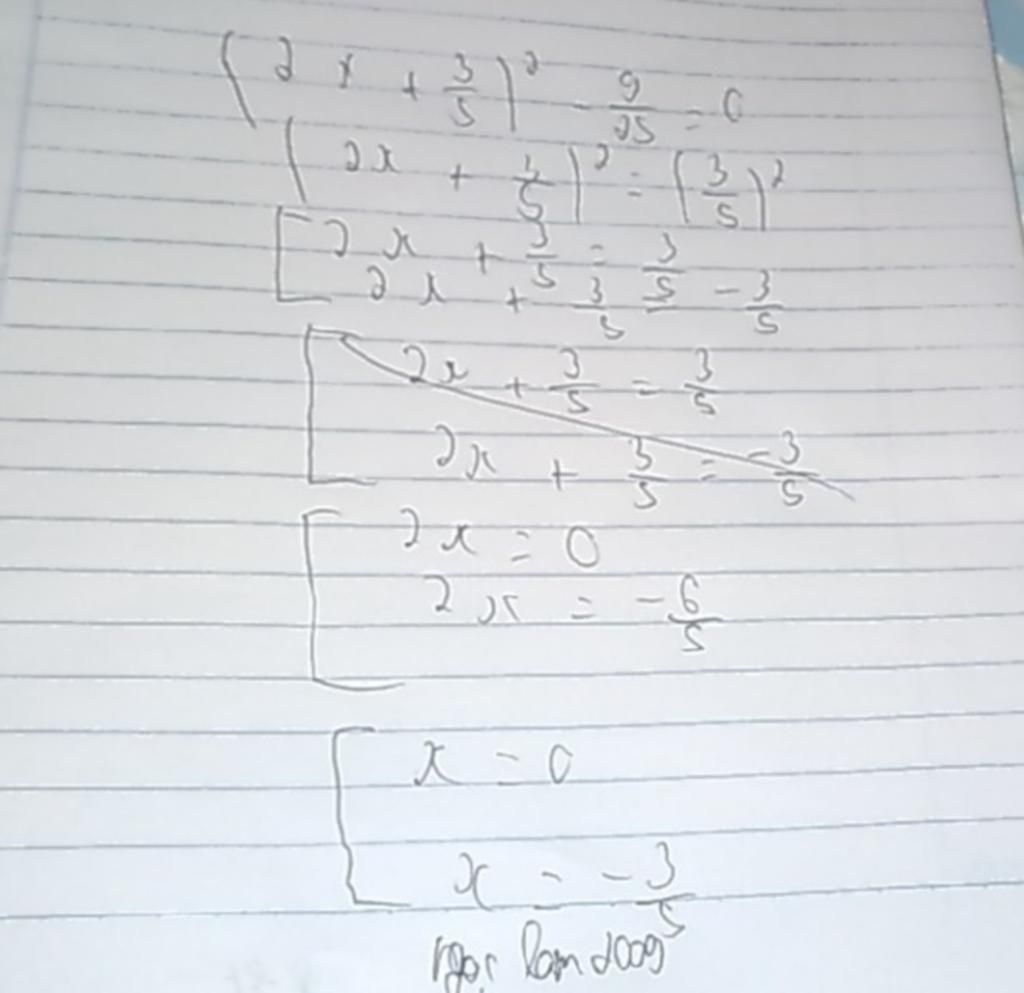 (2x + 3/5)² - 9/25 = 0
(2x + 3/5)² = (3/5)²
[ 2x + 3/5 = 3/5
2x + 3/5 = -3/5
[ 2x + 3/5 = 3/5
2x + 3/5 = -3/5
[ 2x = 0
2x = -6/5
[ x = 0
x = -3/5